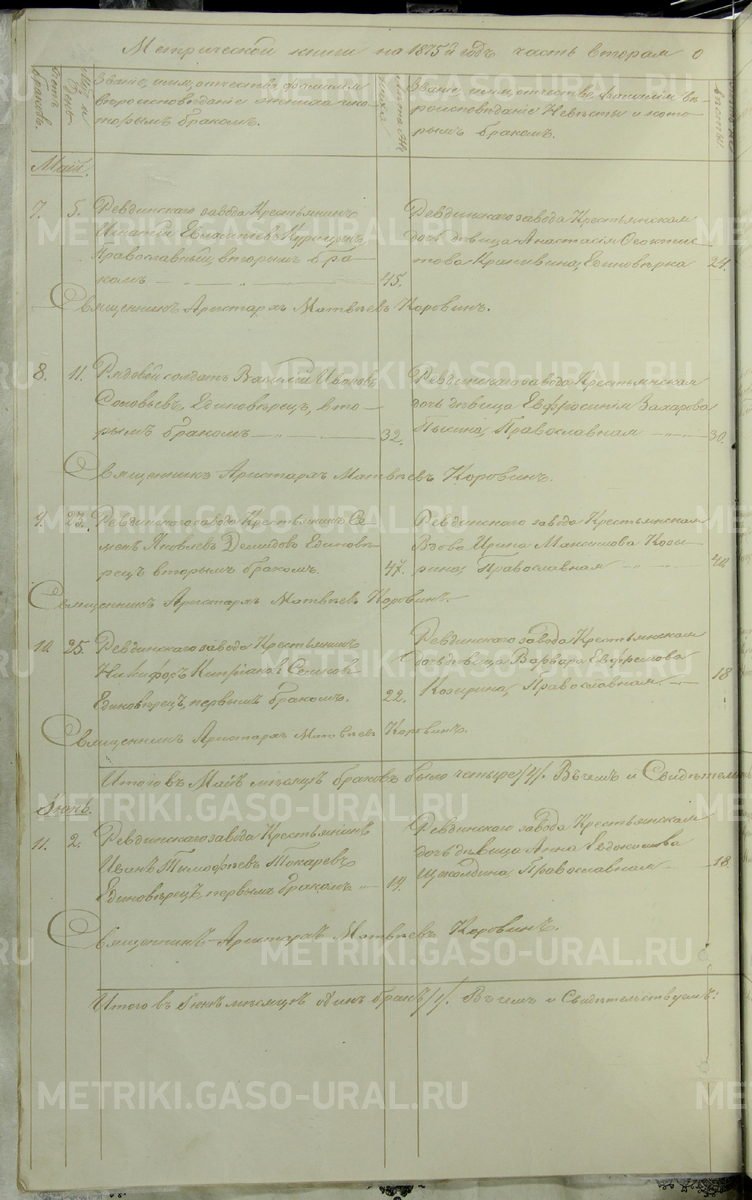 Метрической книги на 1875й годъ часть вторая о
Счетъ браковъ.
Мѣс. и день
Званіе, имя, отчество, фамилія и вѣроисповѣданіе жениха и которымъ бракомъ.
Лѣта жениха
Званіе, имя, отчество, фамилія, вѣроисповѣданіе Невѣсты и которымъ бракомъ.
невѣсты
Май.
7. 5. Ревдинскаго завода Крестьянинъ
Игнатій Евлампіевъ Курицынъ,
Православный, вторымъ бракомъ 45.
Ревдинскаго завода Крестьянская
дочь дѣвица Анастасія Ѳеоктистова
Крапивина, Единовѣрка 24.
Священникъ Аристархъ Матвѣевъ Коровинъ.
8. 11. Рядовой солдатъ Василій Ивановъ
Соловьевъ, Единовѣрецъ, вторымъ
бракомъ 32.
Ревдинскаго завода Крестьянская
дочь дѣвица Евфросинія Захарова
Православная 30.
Священникъ Аристархъ Матвѣевъ Коровинъ.
9. 23. Ревдинскаго завода Крестьянинъ Семенъ
Яковлевъ Демидовъ Единовѣрецъ
вторымъ бракомъ. 47.
Ревдинскаго завода Крестьянская
Вдова Ирина Максимова
Православная 40
Священникъ Аристархъ Матвѣевъ Коровинъ.
10. 25. Ревдинскаго завода Крестьянинъ
Никифоръ Кипріановъ
Единовѣрецъ, первымъ бракомъ. 22.
Ревдинскаго завода Крестьянская
дочь дѣвица Варвара Евфремова
Козырина, Православная 18
Священникъ Аристархъ Матвѣевъ Коровинъ.
Итого въ Маѣ мѣсяцѣ браковъ было четыре /4/. Въ чемъ и Свидѣтель
Іюнь.
11. 2. Ревдинскаго завода Крестьянинъ
Иванъ Тимофѣевъ Токаревъ
Единовѣрецъ, первымъ бракомъ 19.
Ревдинскаго завода Крестьянская
дочь дѣвица Анна Евдокимова
Православная 18.
Священникъ Аристархъ Матвѣевъ Коровинъ.
Итого въ Іюнѣ мѣсяцѣ одинъ бракъ /1/. Въ чемъ и Свидѣтельствуемъ:
METRIKI.GASO-URAL.RU